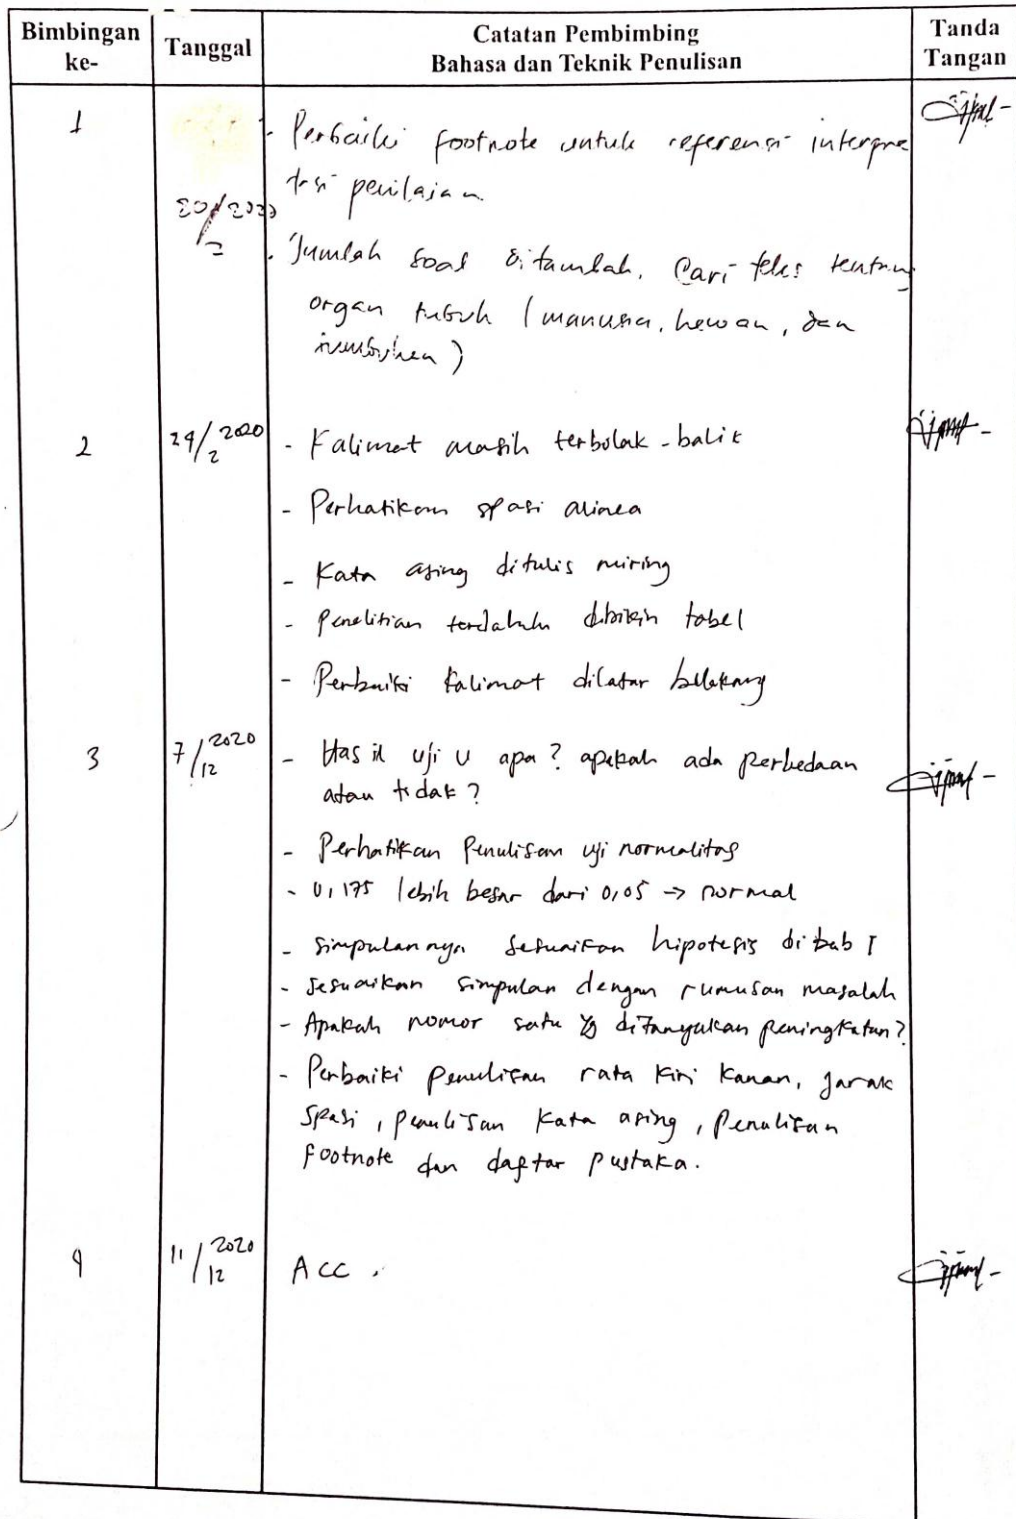 Bimbingan ke-
Tanggal
Catatan Pembimbing
Bahasa dan Teknik Penulisan
Tanda Tangan
1
- Perbaiki footnote untuk referensi interpre
tasi penilaian
20/2 2020
- Jumlah soal ditambah. Cari teks tentang
organ tubuh (manusia, hewan, dan
tumbuhan)
2
24/2 2020
- Kalimat masih terbolak-balik
- Perhatikan spasi alinea
- Kata asing ditulis miring
- Penelitian terdahulu dibikin tabel
- Perbaiki kalimat dilatar belakang
3
7/12 2020
- Hasil uji U apa? apakah ada perbedaan
atau tidak?
- Perhatikan Penulisan uji normalitas
- 0,175 lebih besar dari 0,05 → normal
- Simpulannya sesuaikan hipotesis di bab I
- Sesuaikan simpulan dengan rumusan masalah
- Apakah nomor satu yg ditanyakan peningkatan?
- Perbaiki penulisan rata kiri kanan, jarak
spasi, penulisan kata asing, penulisan
footnote dan daftar pustaka.
4
11/12 2020
ACC.